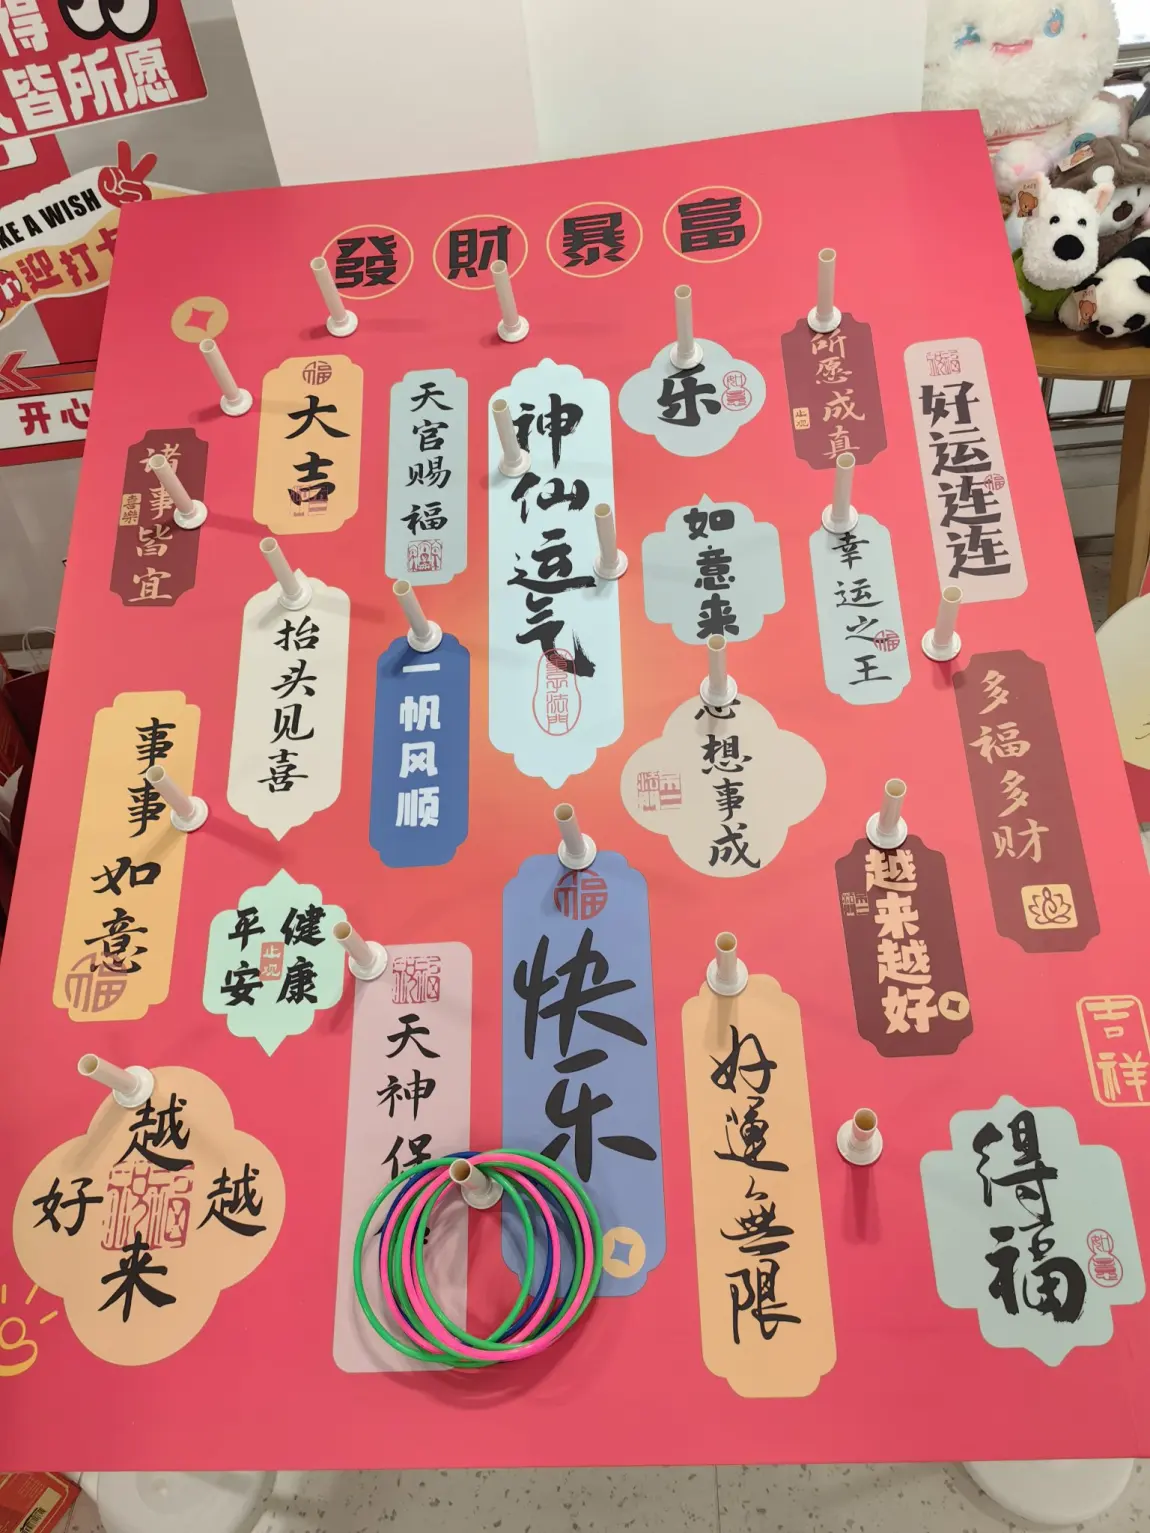 得
皆所愿
KE A WISH
欢迎打卡
开心
發財暴富
福
大吉
天官赐福
神仙运气
乐
所愿成真
好运连连
诸事皆宜
喜樂
抬头见喜
一帆风顺
如意来
幸运之王
福
心想事成
多福多财
事事如意
福
平安
健康
止观
越来越好
福
快乐
天神保
好運無限
越越来好
得福
吉祥